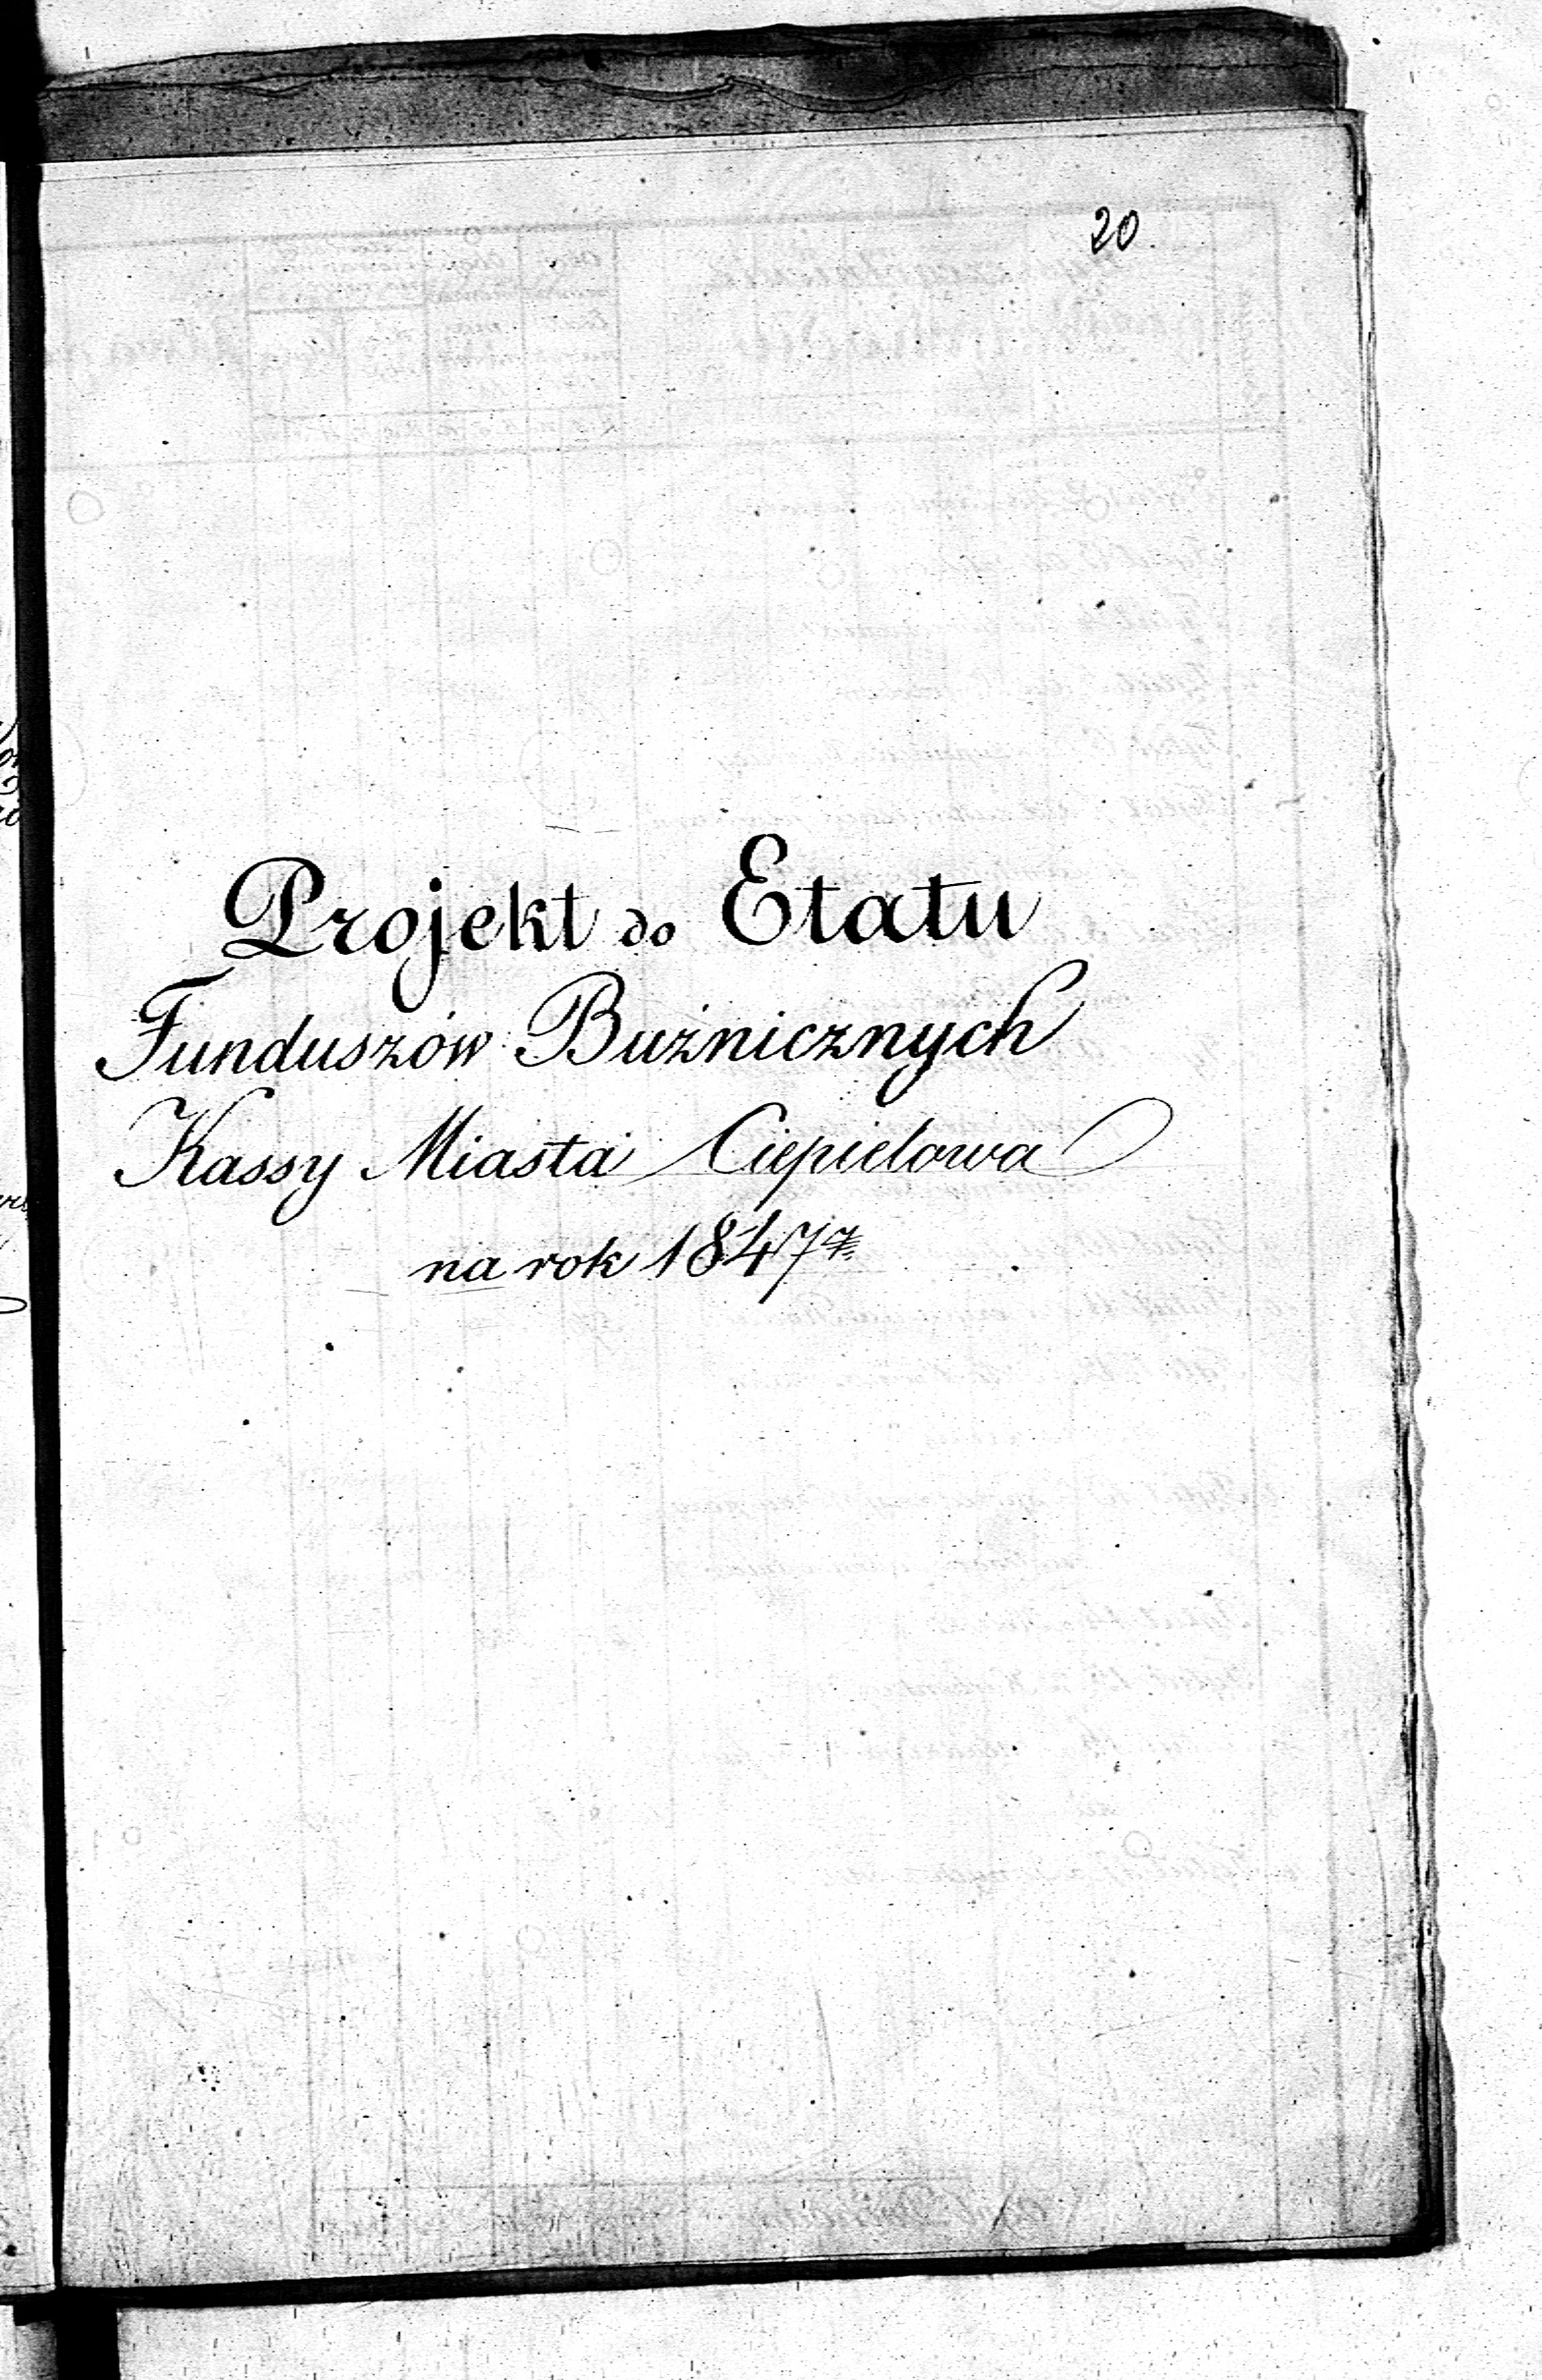 20
Projekt do Etatu
Funduszów Buźnicznych
Kassy Miasta Ciepielowa
na rok 1847